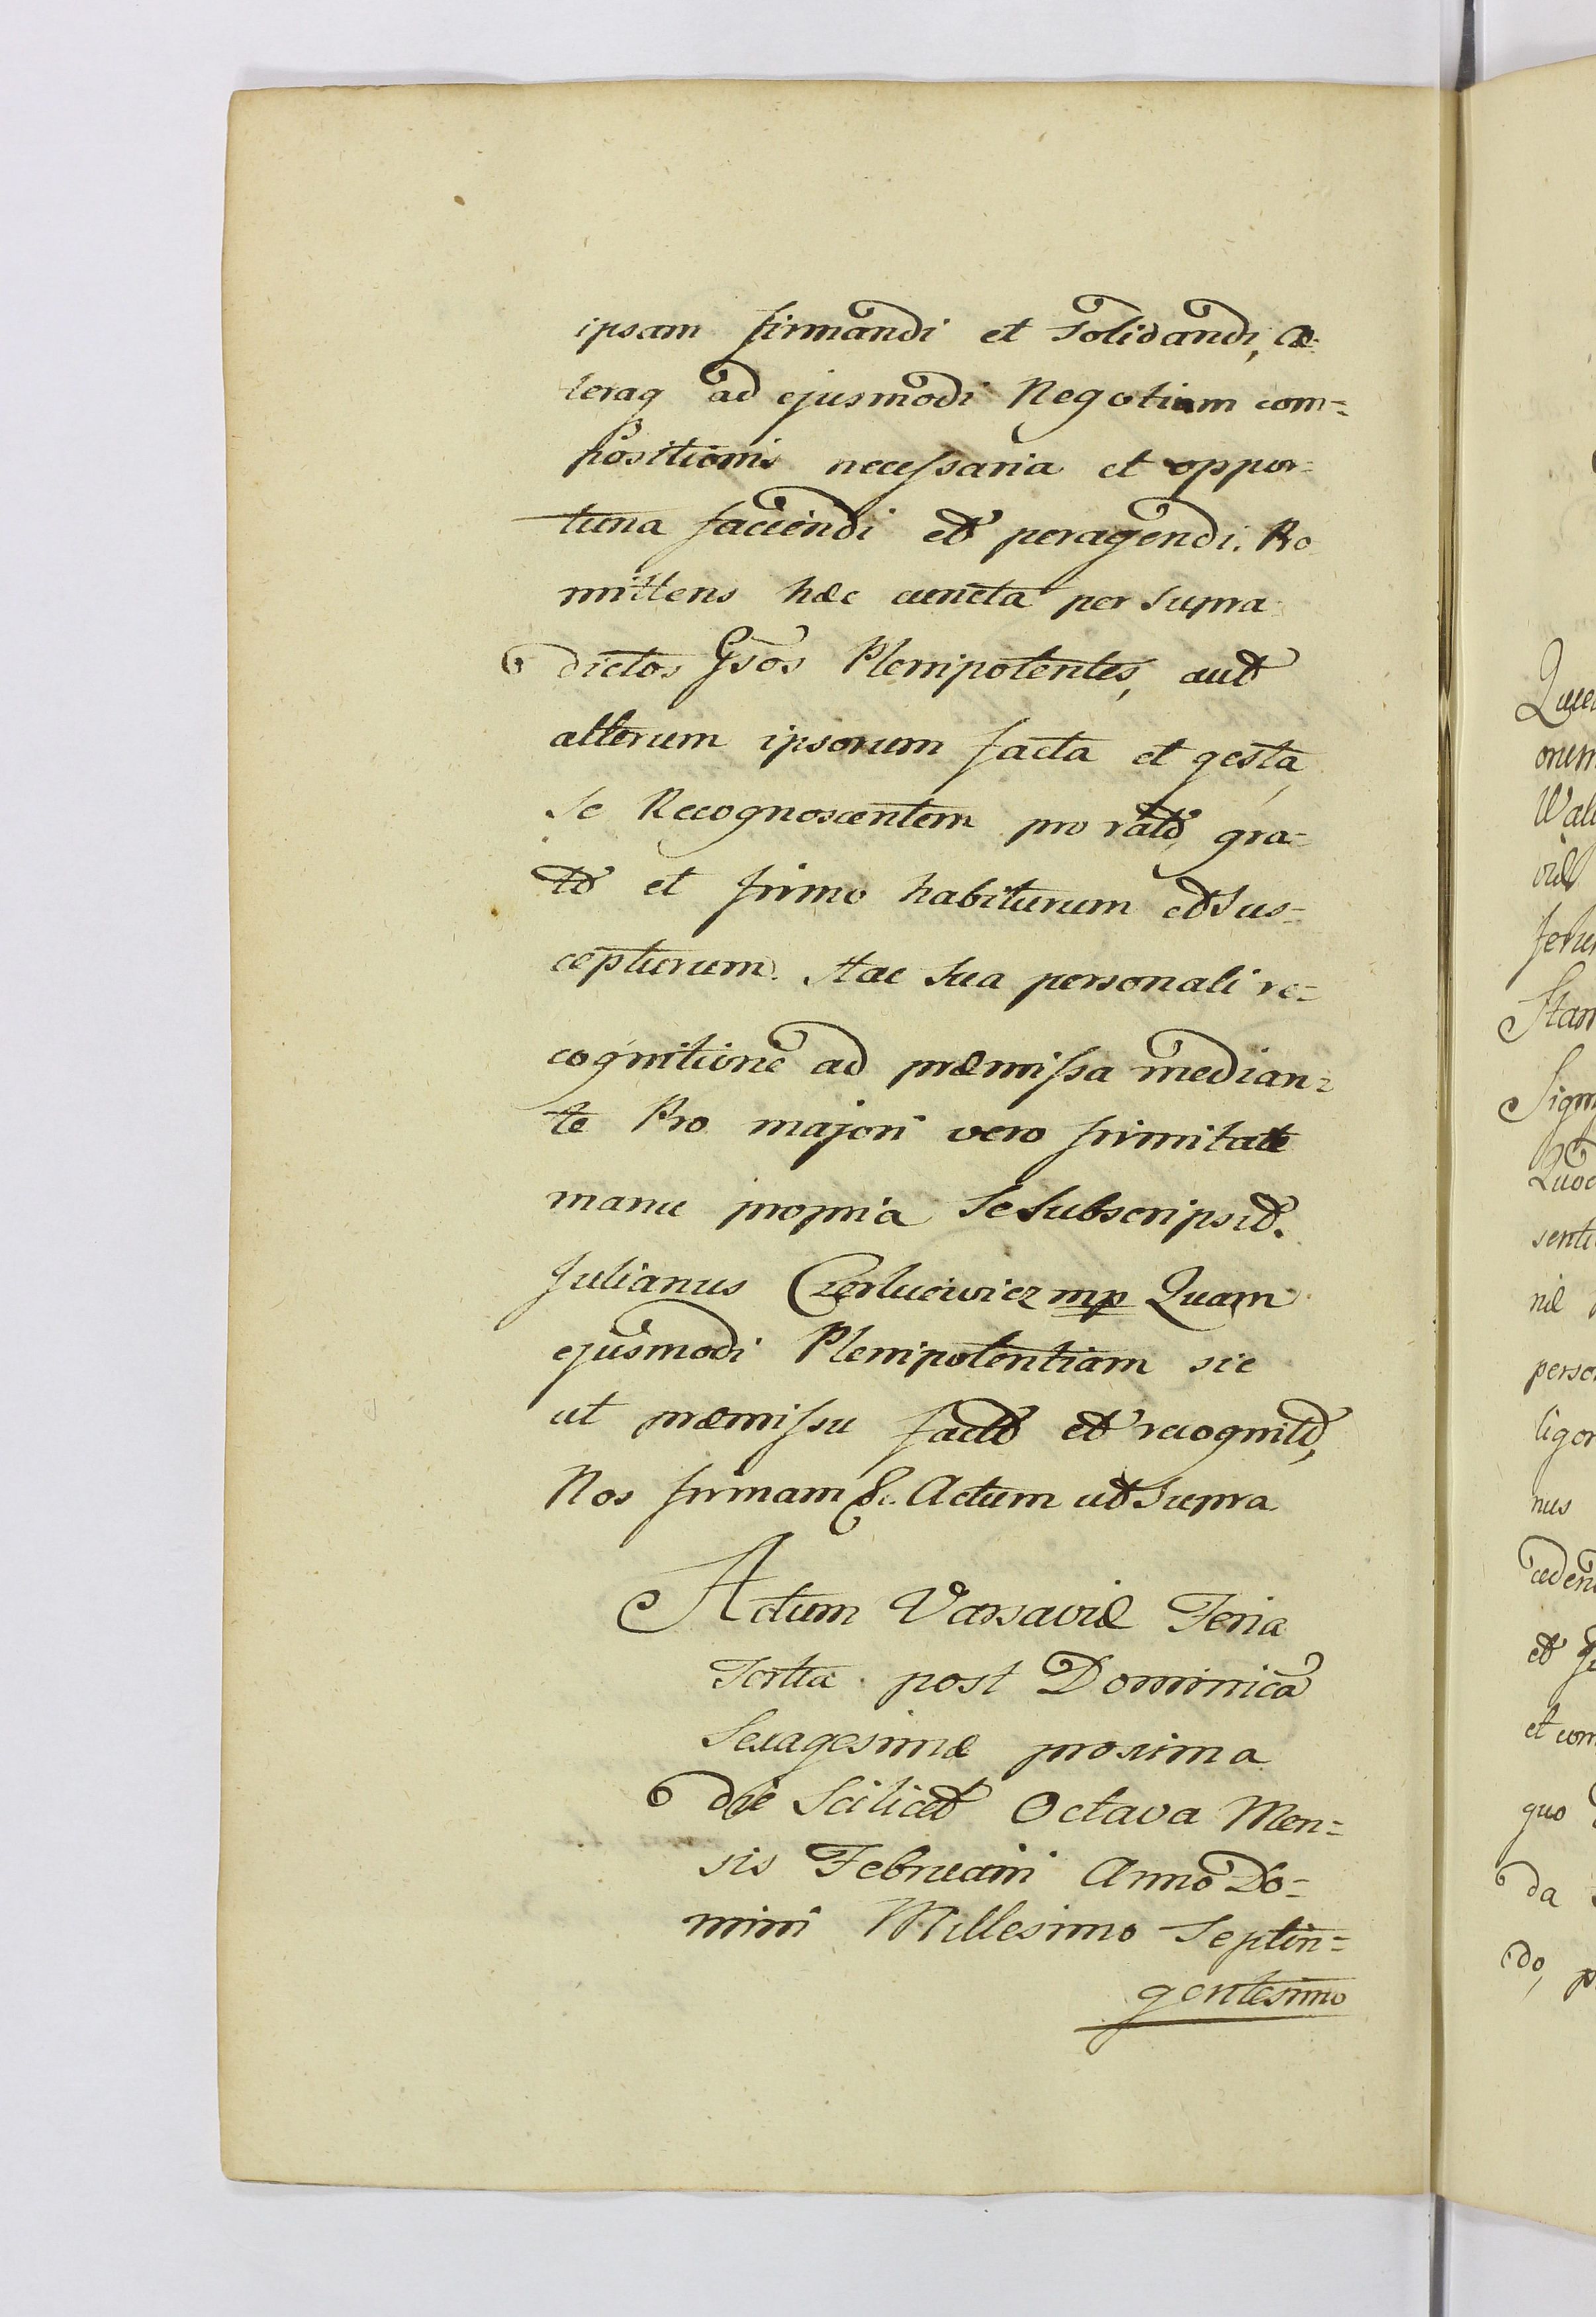 ipsam firmandi et solidandi, cæ:
teraq ad ejusmodi Negotium com=
positionis necessaria et oppor=
tuna faciendi et peragendi. Pro
mittens hæc cuncta per supra
dictos Gsos Plenipotentes, aut
alterum ipsorum facta et gesta,
se Recognoscentem pro rato, gra=
to et firmo habiturum et sus=
cepturum. Hac sua personali re=
cognitione ad præmissa median=
te Pro majori vero firmitate
manu propria se subscripsit.
Julianus mp Quam
ejusmodi Plenipotentiam sic
ut præmissu facto et recognito,
Nos firmam &c. Actum ut supra
Actum Varsaviæ Feria
Tertia post Dominica
Sexagesimæ proxima
die Scilicet Octava Men=
sis Februarii Anno Do=
mini Millesimo Septin=
gentesimo